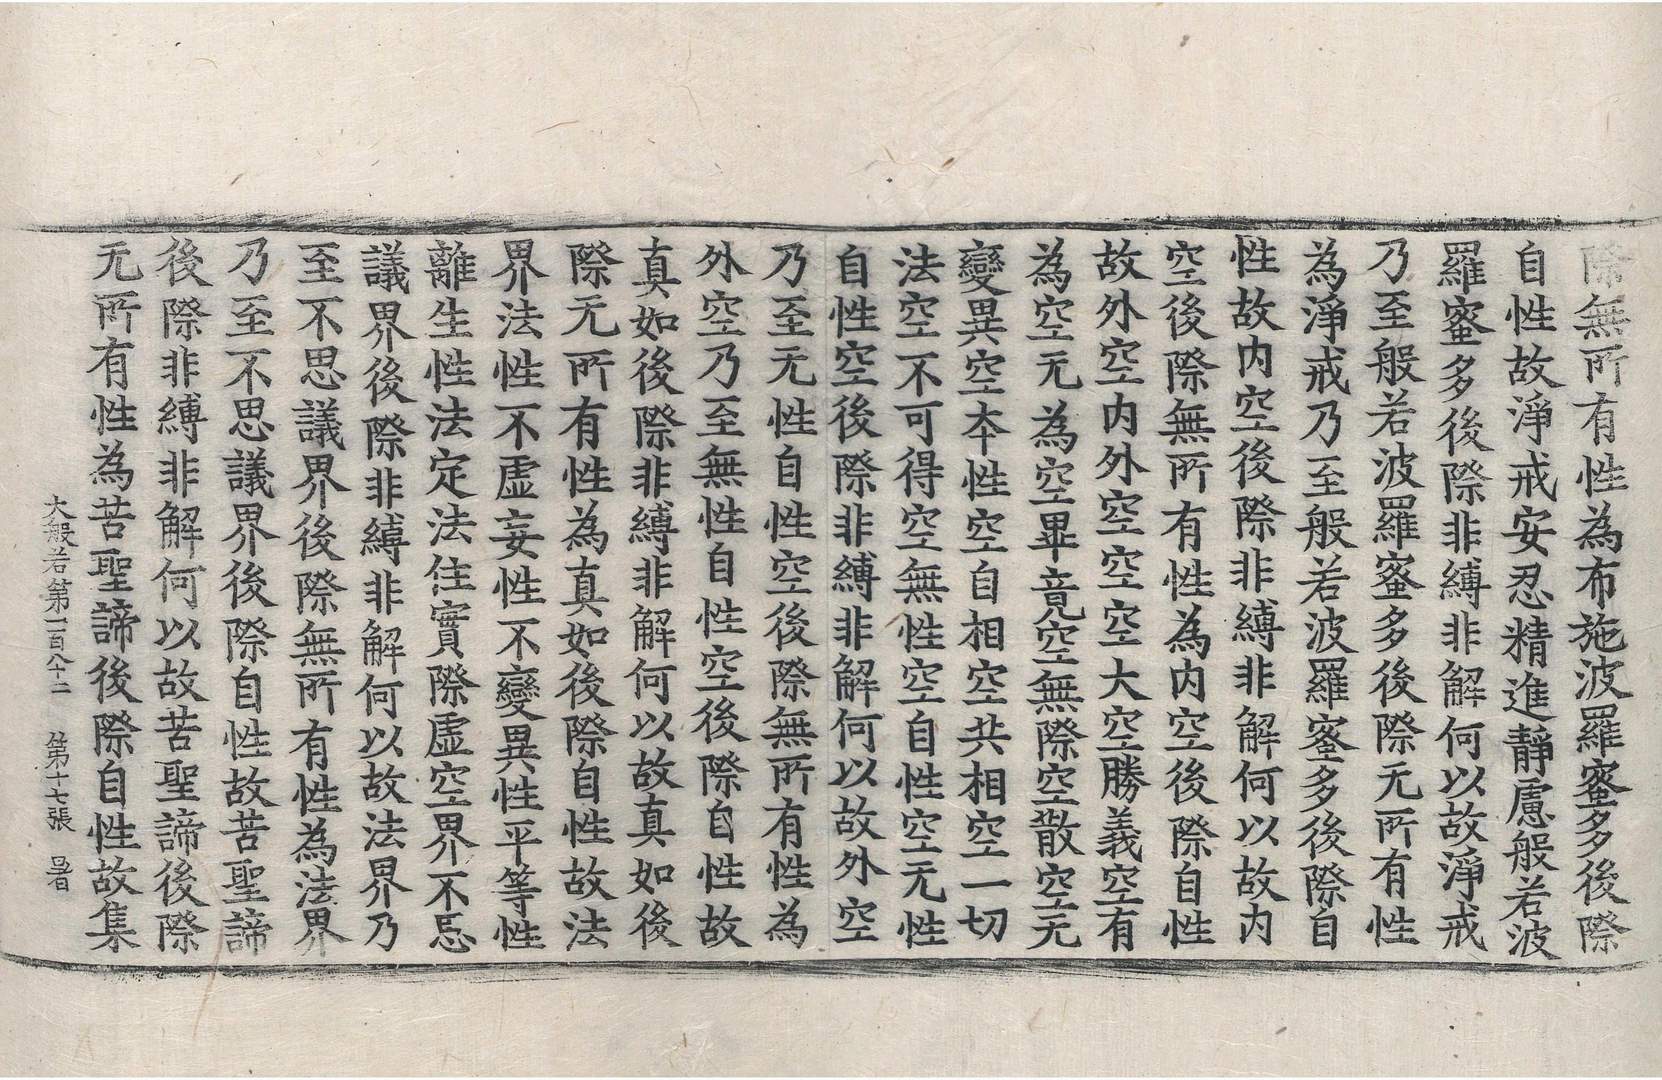 際無所有性為布施波羅蜜多後際
自性故淨戒安忍精進靜慮般若波
羅蜜多後際非縛非解何以故淨戒
乃至般若波羅蜜多後際无所有性
為淨戒乃至般若波羅蜜多後際自
性故内空後際非縛非解何以故内
空後際無所有性為内空後際自性
故外空内外空空空大空勝義空有
為空无為空畢竟空無際空散空无
變異空夲性空自相空共相空一切
法空不可得空無性空自性空无性
自性空後際非縛非解何以故外空
乃至无性自性空後際無所有性為
外空乃至無性自性空後際自性故
真如後際非縛非解何以故真如後
際无所有性為真如後際自性故法
界法性不虛妄性不變異性平等性
離生性法定法住實際虛空界不思
議界後際非縛非解何以故法界乃
至不思議界後際無所有性為法界
乃至不思議界後際自性故苦聖諦
後際非縛非解何以故苦聖諦後際
无所有性為苦聖諦後際自性故集
大般若第一百八十二 第十七張 暑